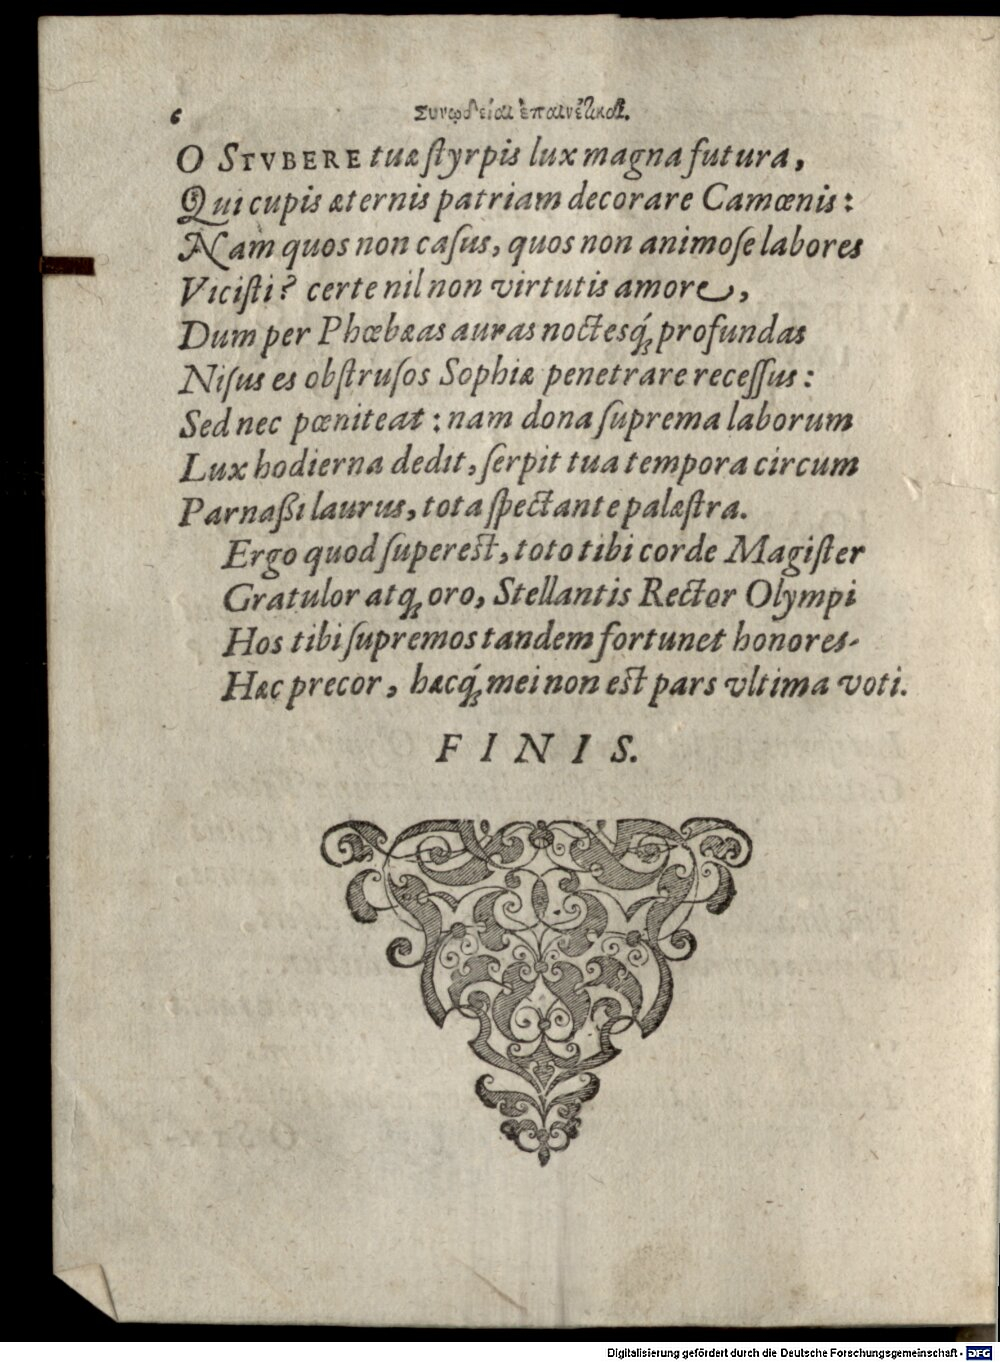 6 Συνῳδείαι ἐπαινέτικαὶ.
O STVBERE tuæ ſtyrpis lux magna futura,
Qui cupis æternis patriam decorare Camœnis:
Nam quos non caſus, quos non animoſe labores
Viciſti? certe nil non virtutis amore,
Dum per Phœbæas auras noctesq́; profundas
Niſus es obſtruſos Sophiæ penetrare receſſus:
Sed nec pœniteat: nam dona ſuprema laborum
Lux hodierna dedit, ſerpit tua tempora circum
Parnaßi laurus, tota ſpectante palæſtra.
Ergo quod ſupereſt, toto tibi corde Magiſter
Gratulor atq; oro, Stellantis Rector Olympi
Hos tibi ſupremos tandem fortunet honores.
Hæc precor, hæcq́; mei non eſt pars vltima voti.
FINIS.
Digitalisierung gefördert durch die Deutsche Forschungsgemeinschaft - DFG